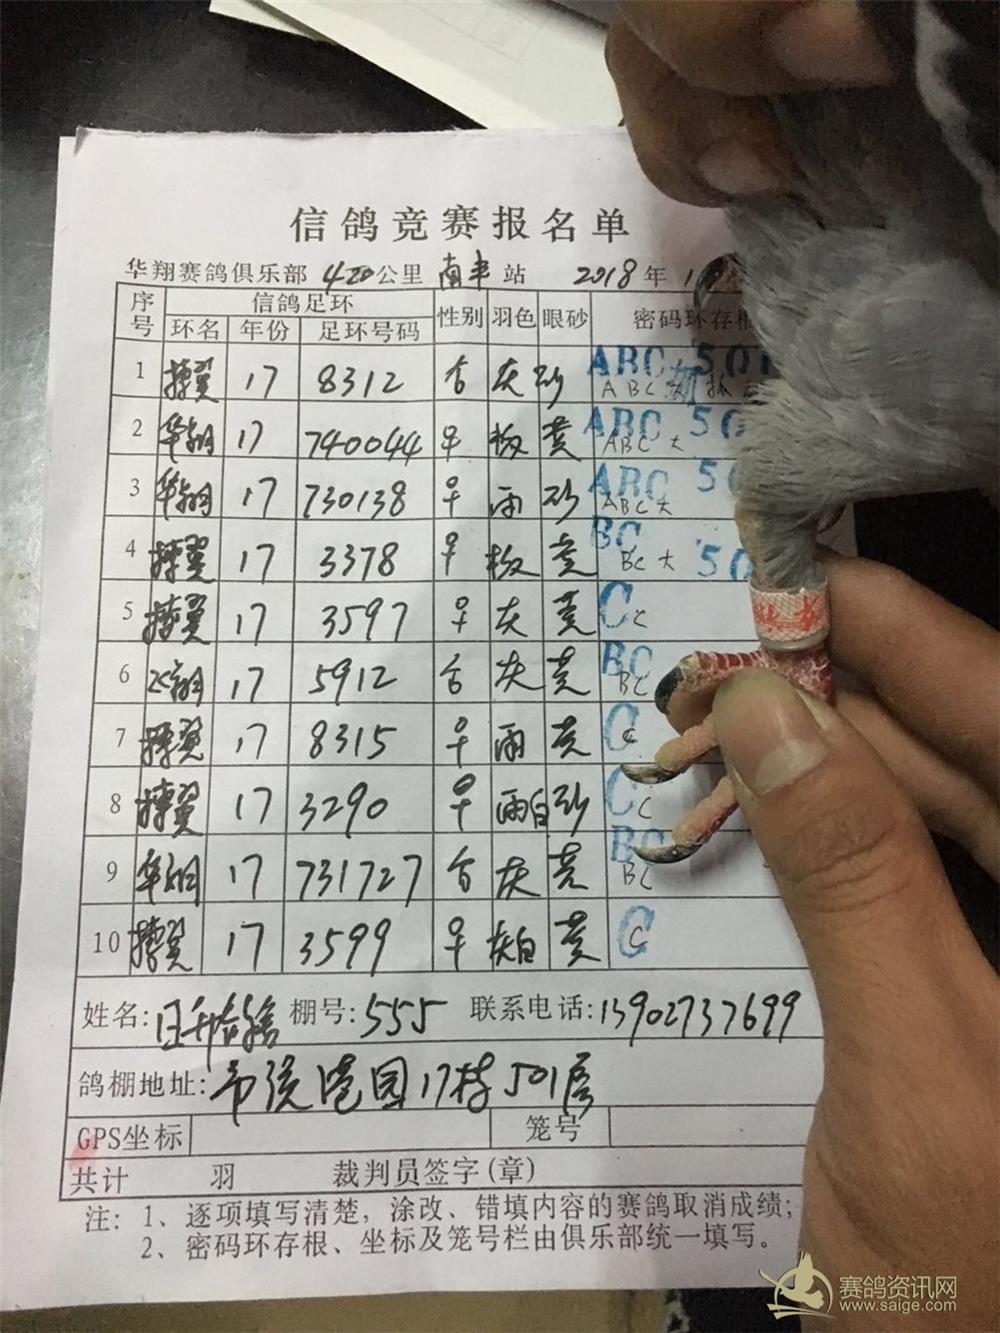 信鸽竞赛报名单
华翔赛鸽俱乐部 420公里 南丰 站 2018年 1
序号 信鸽足环 性别 羽色 眼砂 密码环存根
环名 年份 足环号码
1 搏翼 17 8312 合 灰 砂 ABC 501 ABC大
2 华翔 17 740044 早 板 黄 ABC 50 ABC大
3 华翔 17 730138 早 雨 砂 ABC 50 ABC大
4 搏翼 17 3378 早 板 黄 BC 50 BC大
5 搏翼 17 3597 早 灰 黄 C C
6 翔 17 5912 合 灰 黄 BC BC
7 搏翼 17 8315 早 雨 黄 C C
8 搏翼 17 3290 早 雨白 砂 C C
9 华翔 17 731727 合 灰 黄 BC BC
10 搏翼 17 3599 早 灰白 黄 C C
姓名: 日升 棚号: 555 联系电话: 13902737699
鸽棚地址: 园17栋501房
GPS坐标 笼号
共计 羽 裁判员签字(章)
注: 1、逐项填写清楚, 涂改、错填内容的赛鸽取消成绩;
2、密码环存根、坐标及笼号栏由俱乐部统一填写。
赛鸽资讯网
www.saige.com